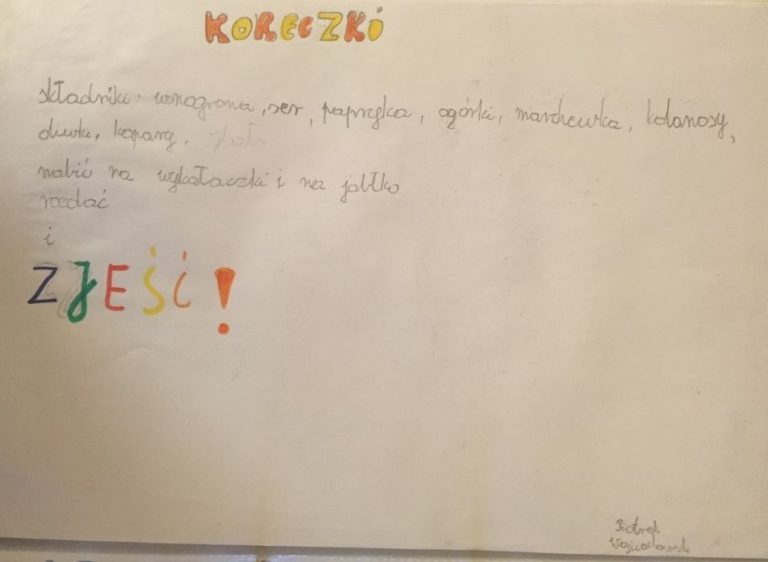 KORECZKI
składniki: winogrona, ser, papryka, ogórki, marchewka, kabanosy,
oliwki, kapary.
nabić na wykałaczki i na jabłko
rozdać
i
ZJEŚĆ!
Piotrek